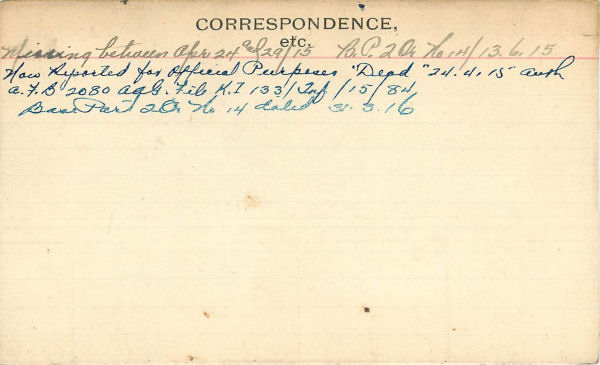 CORRESPONDENCE,
etc.
Missing between Apr 24 and 29/15 B.P. 2 Or No 14/13.6.15
Now Reported for Official Purposes "Dead" 24.4.15 auth
A.F.B 2080 A.G. File K.I 133/Inf/15/84
Base Part 2 Or No 14 dated 31.3.16